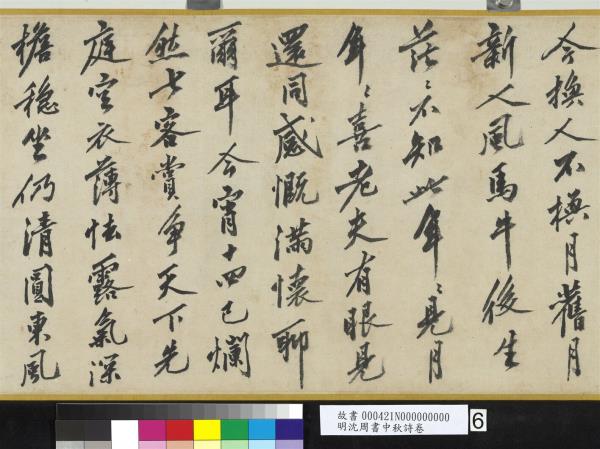 今換人不換月舊月
新人風馬牛後生
茫〻不知此年〻見月
年〻喜老夫有眼見
還同感慨滿懷聊
爾耳今宵十四已爛
然七客賞爭天下先
庭空衣薄怯露氣深
檐穩坐仍清圓東風
故書 000421N000000000
明沈周書中秋詩卷
6